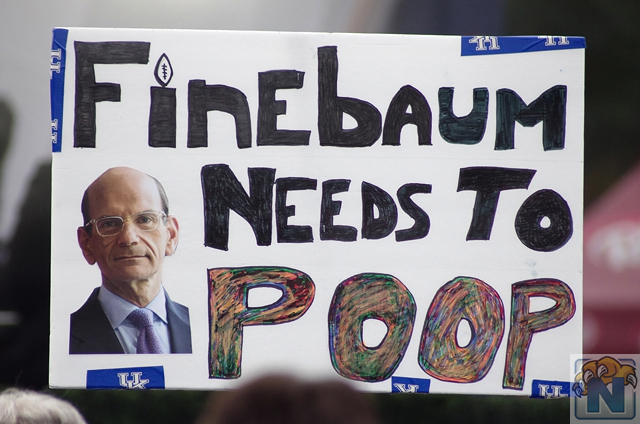 FineBAUM
NEEDS TO
POOP
UK
UK
UK
UK
UK
UK
UK
N